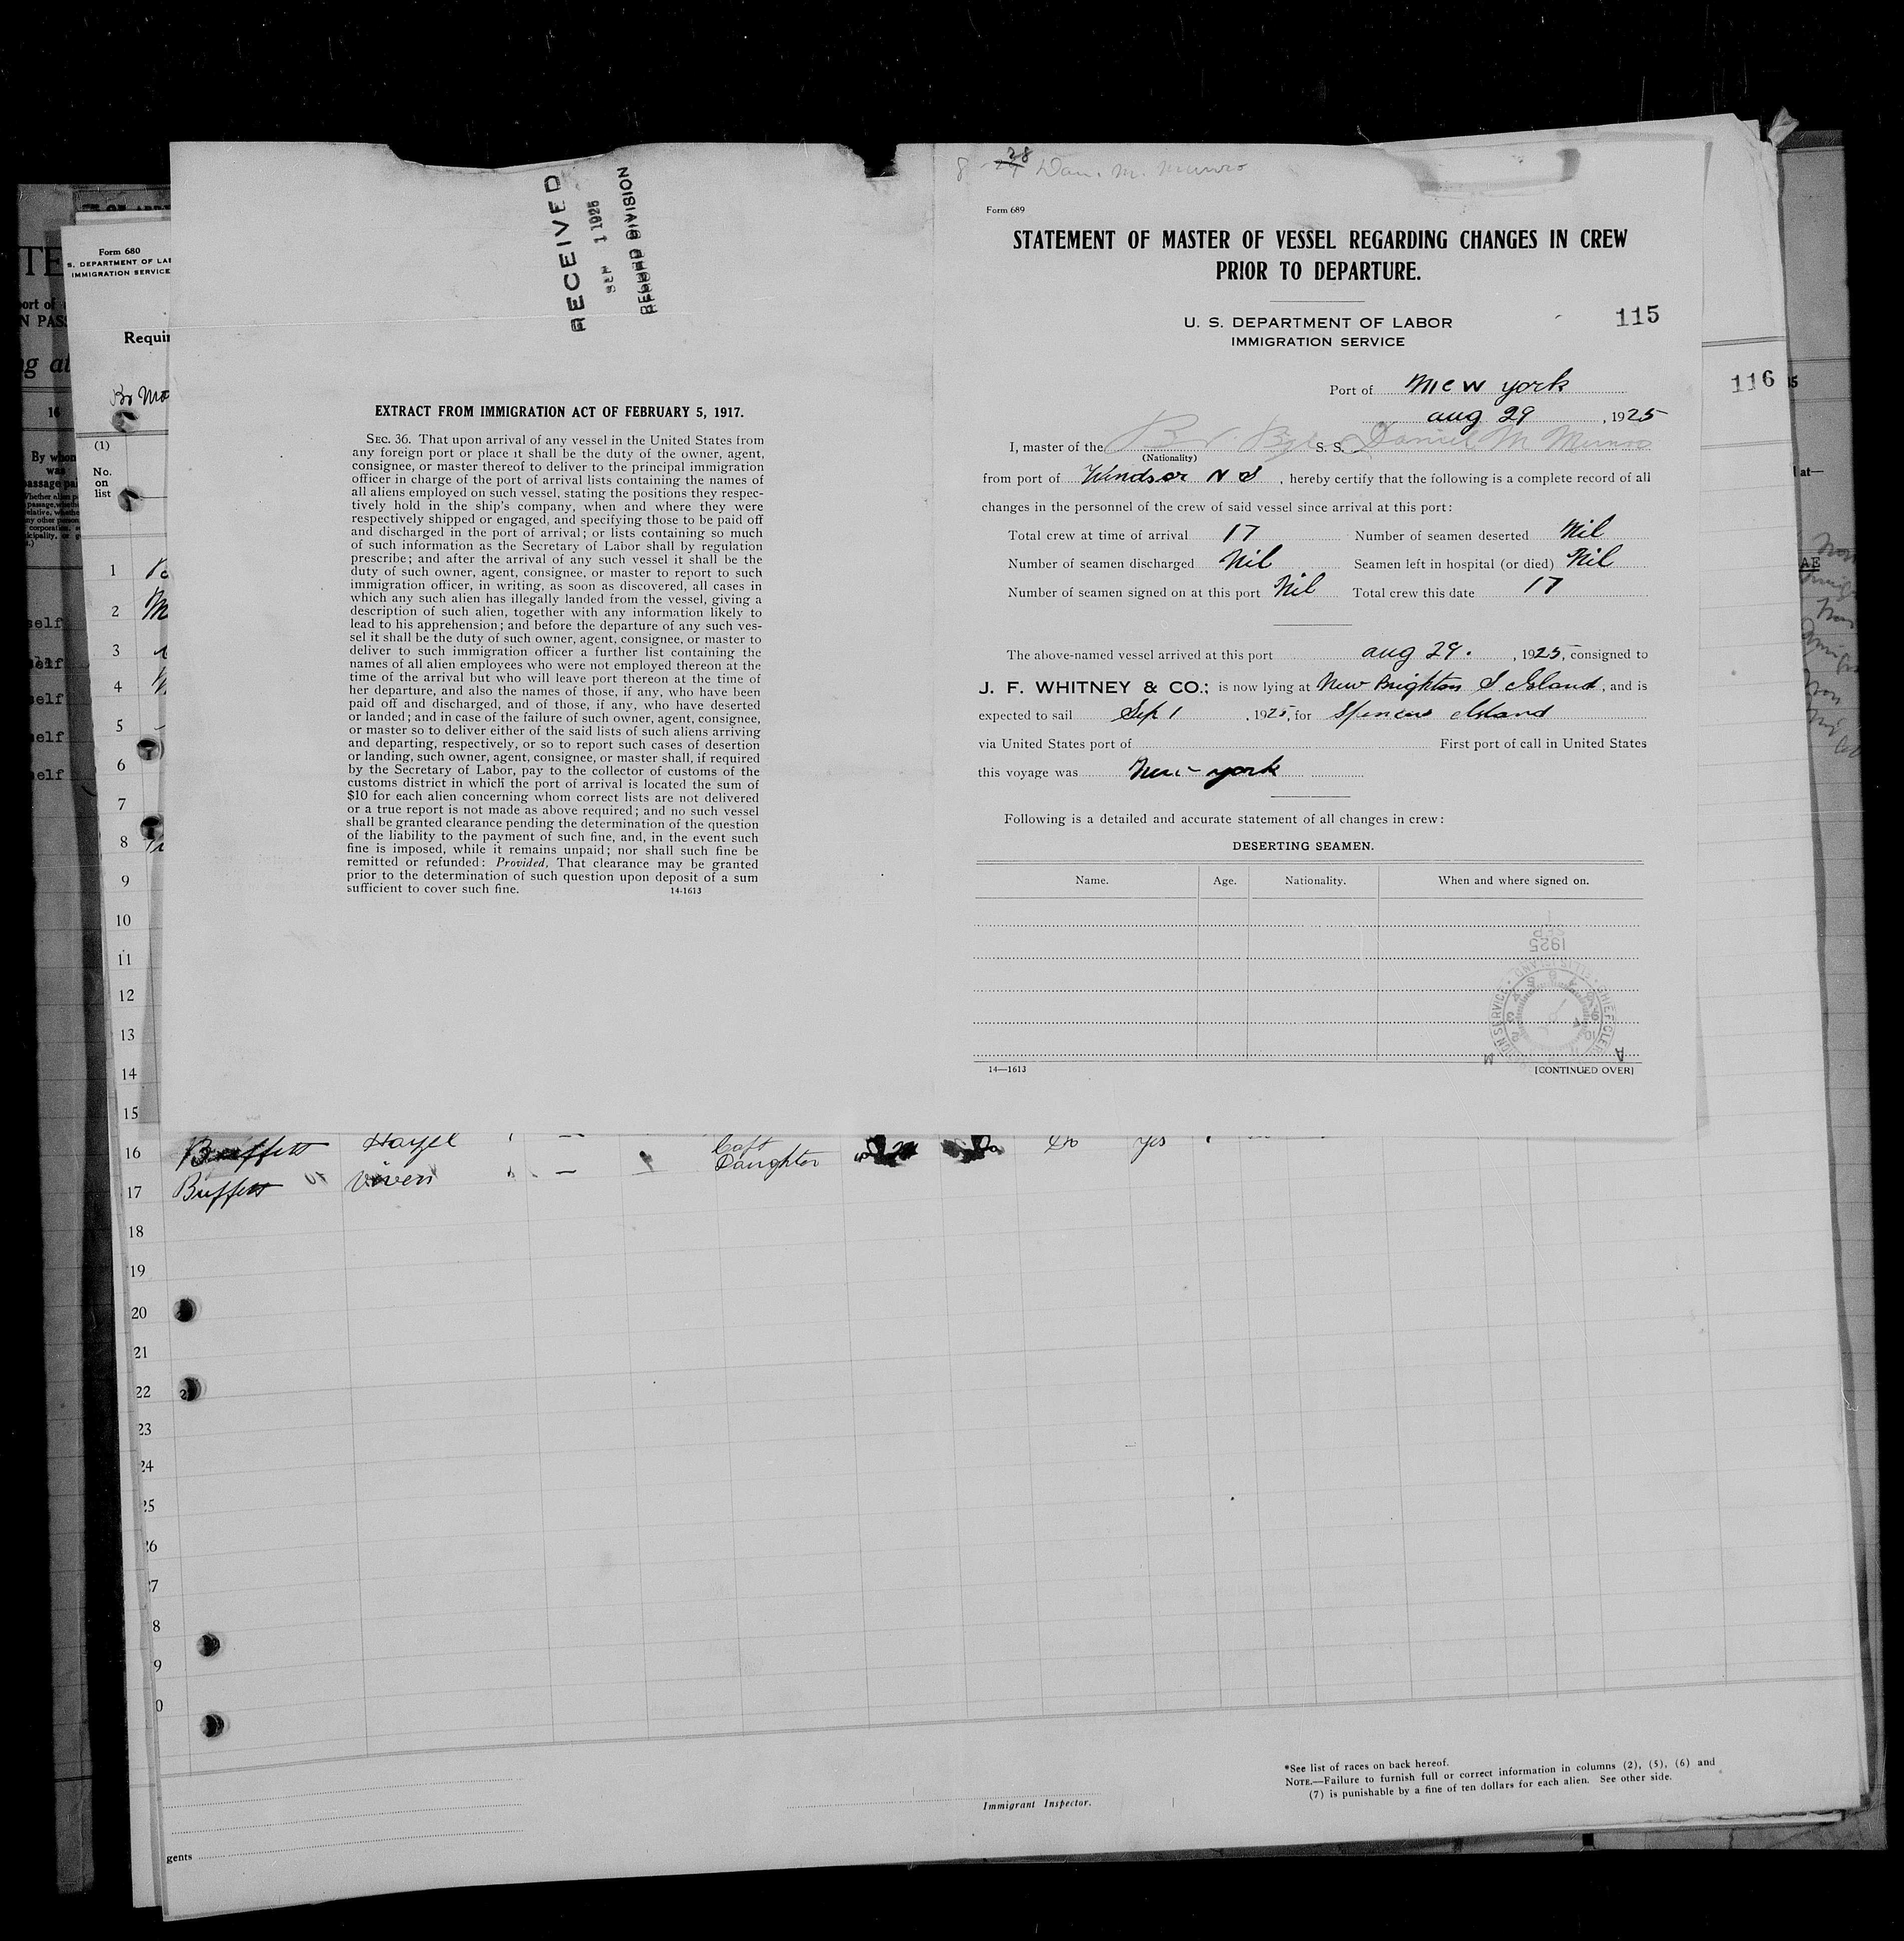 8 28 Dan. M. Munro
RECEIVED
SEP 1 1925
RECORD DIVISION
EXTRACT FROM IMMIGRATION ACT OF FEBRUARY 5, 1917.
SEC. 36. That upon arrival of any vessel in the United States from
any foreign port or place it shall be the duty of the owner, agent,
consignee, or master thereof to deliver to the principal immigration
officer in charge of the port of arrival lists containing the names of
all aliens employed on such vessel, stating the positions they respec-
tively hold in the ship's company, when and where they were
respectively shipped or engaged, and specifying those to be paid off
and discharged in the port of arrival; or lists containing so much
of such information as the Secretary of Labor shall by regulation
prescribe; and after the arrival of any such vessel it shall be the
duty of such owner, agent, consignee, or master to report to such
immigration officer, in writing, as soon as discovered, all cases in
which any such alien has illegally landed from the vessel, giving a
description of such alien, together with any information likely to
lead to his apprehension; and before the departure of any such ves-
sel it shall be the duty of such owner, agent, consignee, or master to
deliver to such immigration officer a further list containing the
names of all alien employees who were not employed thereon at the
time of the arrival but who will leave port thereon at the time of
her departure, and also the names of those, if any, who have been
paid off and discharged, and of those, if any, who have deserted
or landed; and in case of the failure of such owner, agent, consignee,
or master so to deliver either of the said lists of such aliens arriving
and departing, respectively, or so to report such cases of desertion
or landing, such owner, agent, consignee, or master shall, if required
by the Secretary of Labor, pay to the collector of customs of the
customs district in which the port of arrival is located the sum of
$10 for each alien concerning whom correct lists are not delivered
or a true report is not made as above required; and no such vessel
shall be granted clearance pending the determination of the question
of the liability to the payment of such fine, and, in the event such
fine is imposed, while it remains unpaid; nor shall such fine be
remitted or refunded: Provided, That clearance may be granted
prior to the determination of such question upon deposit of a sum
sufficient to cover such fine. 14-1613
Form 689
STATEMENT OF MASTER OF VESSEL REGARDING CHANGES IN CREW
PRIOR TO DEPARTURE.
U. S. DEPARTMENT OF LABOR
IMMIGRATION SERVICE
115
Port of New York
Aug 29, 1925
I, master of the Br. S. S. Daniel M Munro
(Nationality)
from port of Windsor N S, hereby certify that the following is a complete record of all
changes in the personnel of the crew of said vessel since arrival at this port:
Total crew at time of arrival 17 Number of seamen deserted Nil
Number of seamen discharged Nil Seamen left in hospital (or died) Nil
Number of seamen signed on at this port Nil Total crew this date 17
The above-named vessel arrived at this port Aug 29., 1925, consigned to
J. F. WHITNEY & CO.; is now lying at New Brighton S Island, and is
expected to sail Sep 1, 1925, for Spencers Island
via United States port of First port of call in United States
this voyage was New York
Following is a detailed and accurate statement of all changes in crew:
DESERTING SEAMEN.
Name. Age. Nationality. When and where signed on.
SEP 1
1925
14—1613 [CONTINUED OVER]
116
Form 680
S. DEPARTMENT OF LA
IMMIGRATION SERVICE
Requir
(1)
No.
on
list
1
2
3
4
5
6
7
8
9
10
11
12
13
14
15
16 Buffett Hazel Capt Daughter Yes
17 Buffett Viven
18
19
20
21
22
23
24
25
26
27
8
9
0
gents
Immigrant Inspector.
*See list of races on back hereof.
NOTE.—Failure to furnish full or correct information in columns (2), (5), (6) and
(7) is punishable by a fine of ten dollars for each alien. See other side.